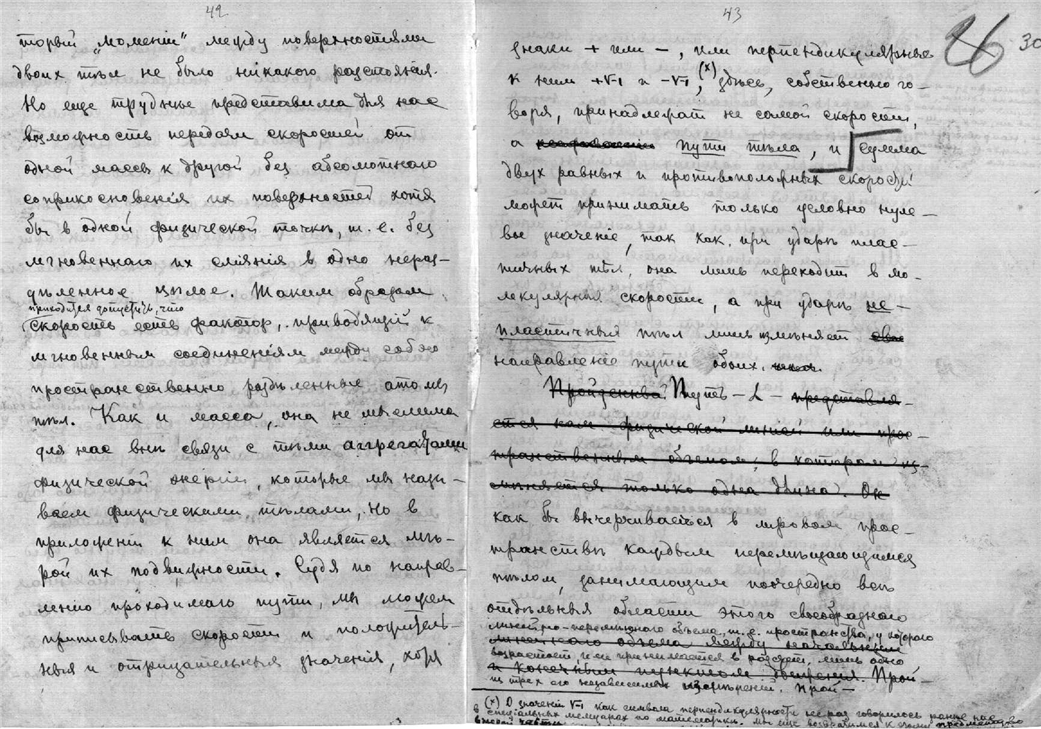 42
торый „моментъ" между поверхностями
двоихъ тѣлъ не было никакого разстоянія.
Но еще труднѣе представима для насъ
возможность передачи скоростей отъ
одной массы къ другой безъ абсолютнаго
соприкосновенія ихъ поверхностей хотя
бы въ одной физической точкѣ, т.е. безъ
мгновеннаго ихъ слиянія в одно нераз-
дѣленное цѣлое. Такимъ образомъ,
приходится допустить, что
скорость есть факторъ, приводящій к
мгновеннымъ соединеніямъ между собою
пространственно раздѣленные атомы
тѣлъ. Какъ и масса, она не мыслима
для насъ внѣ связи съ тѣми аггрегатами
физической энергіи, которые мы назы-
ваемъ физическими тѣлами, но в
приложеніи к нимъ она является мѣ-
рой их подвижности. Судя по направ-
ленію проходимаго пути, мы можемъ
приписывать скорости и положитель-
ныя и отрицательныя значенія, хотя
43
26
30
знаки + или −, или перпендикулярные
к нимъ +√-1 и -√-1,(x) здѣсь, собственно го-
воря, принадлежатъ не самой скорости,
а пути тѣла, и сумма
двухъ равныхъ и противоположныхъ скоростей
может принимать только условно нуле-
вое значеніе, так как, при ударѣ плас-
тичныхъ тѣлъ, она лишь переходитъ в мо-
лекулярныя скорости, а при ударѣ не-
пластичныхъ тѣлъ лишь измѣняетъ
направленіе пути обоихъ.
Путь – L – представля-
ется намъ физической линіей или про-
странственнымъ объемомъ, в которомъ из-
мѣняется только одна длина. Он
какъ бы вычерчивается в міровомъ прос-
транствѣ каждымъ перемѣщающимся
тѣломъ, занимающимъ поочередно всѣ
отдѣльныя области этого своеобразнаго
линейно-перемѣннаго объема, т.е. пространства, у котораго
линейнаго объема между начальнымъ
возрастаетъ и принимается в разсчетъ лишь одно
и конечнымъ пунктомъ движенія. Прой-
из трех его независимыхъ измѣреній. Прой-
(x) О значеніи √-1 как символа перпендикулярности не раз говорилось ранѣе нас
в спеціальныхъ мемуарахъ по математикѣ. Мы еще возвратимся к этому предмету во
второй части